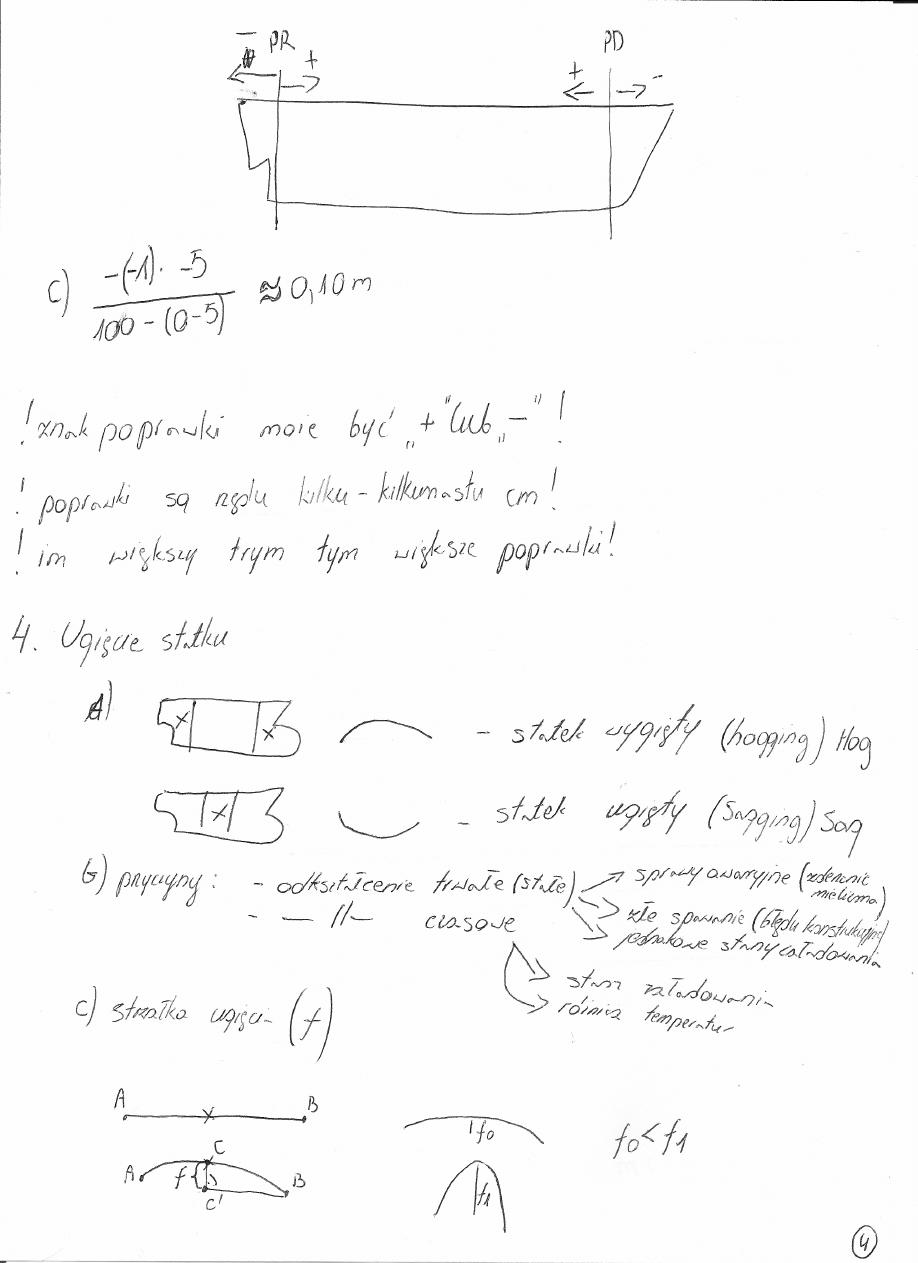 - PR PD
+ + -
c) -(-1)· -5 / 100-(0-5) ≈ 0,10m
! znak poprawki może być „+" lub „-" !
! poprawki są rzędu kilku-kilkunastu cm!
! im większy trym tym większe poprawki!
4. Ugięcie statku
a) - statek wygięty (hogging) Hog
- statek ugięty (Sagging) Sag
b) przyczyny: - odkształcenie trwałe (stałe) → sprawy awaryjne (zderzenie
mielizna)
→ złe spawanie (błędy konstrukcyjne)
- — //— czasowe → jednakowe stany załadowania
→ stan załadowania
→ różnica temperatur
c) strzałka ugięcia (f)
A B
f0 f0<f1
C
A f B
C' f1
4